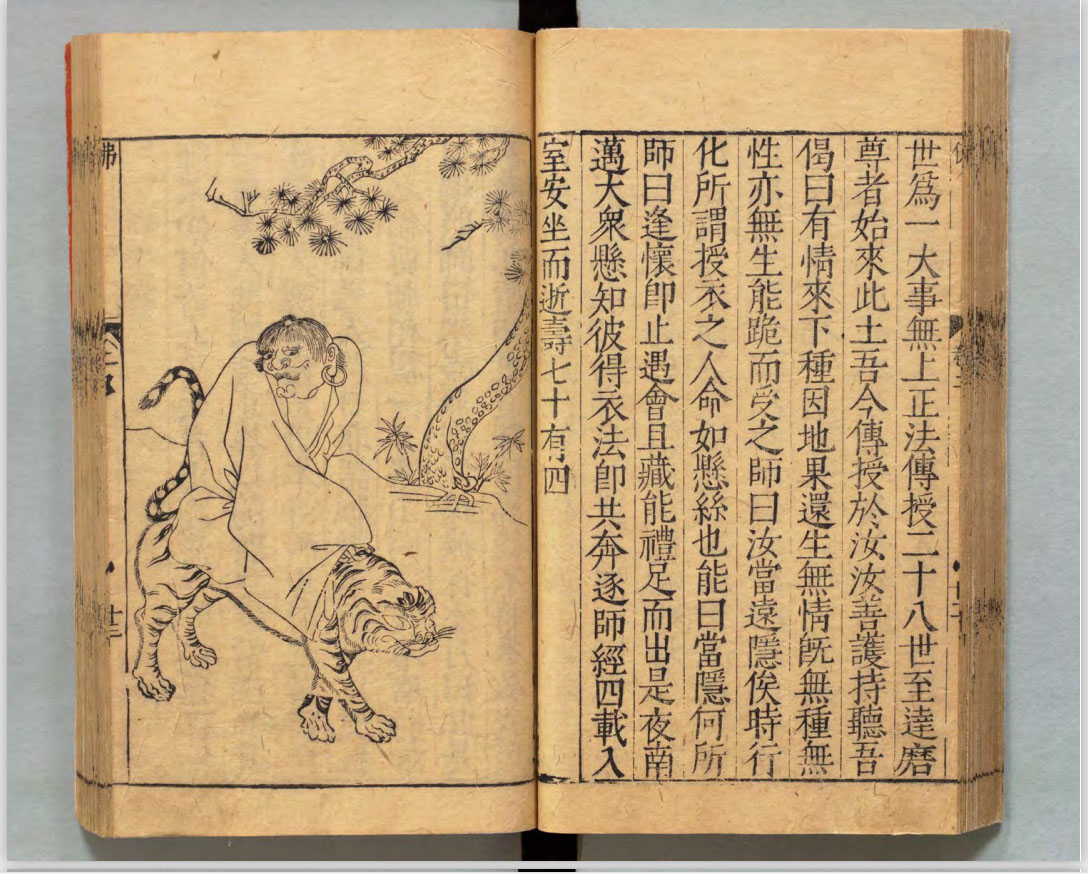 世爲一大事無上正法傳授二十八世至達磨
尊者始來此土吾今傳授於汝汝善護持聽吾
偈曰有情來下種因地果還生無情旣無種無
性亦無生能跪而受之師曰汝當遠隱俟時行
化所謂授衣之人命如懸絲也能曰當隱何所
師曰逢懷卽止遇會且藏能禮足而出是夜南
邁大衆懸知彼得衣法卽共奔逐師經四載入
室安坐而逝壽七十有四
佛
廿二